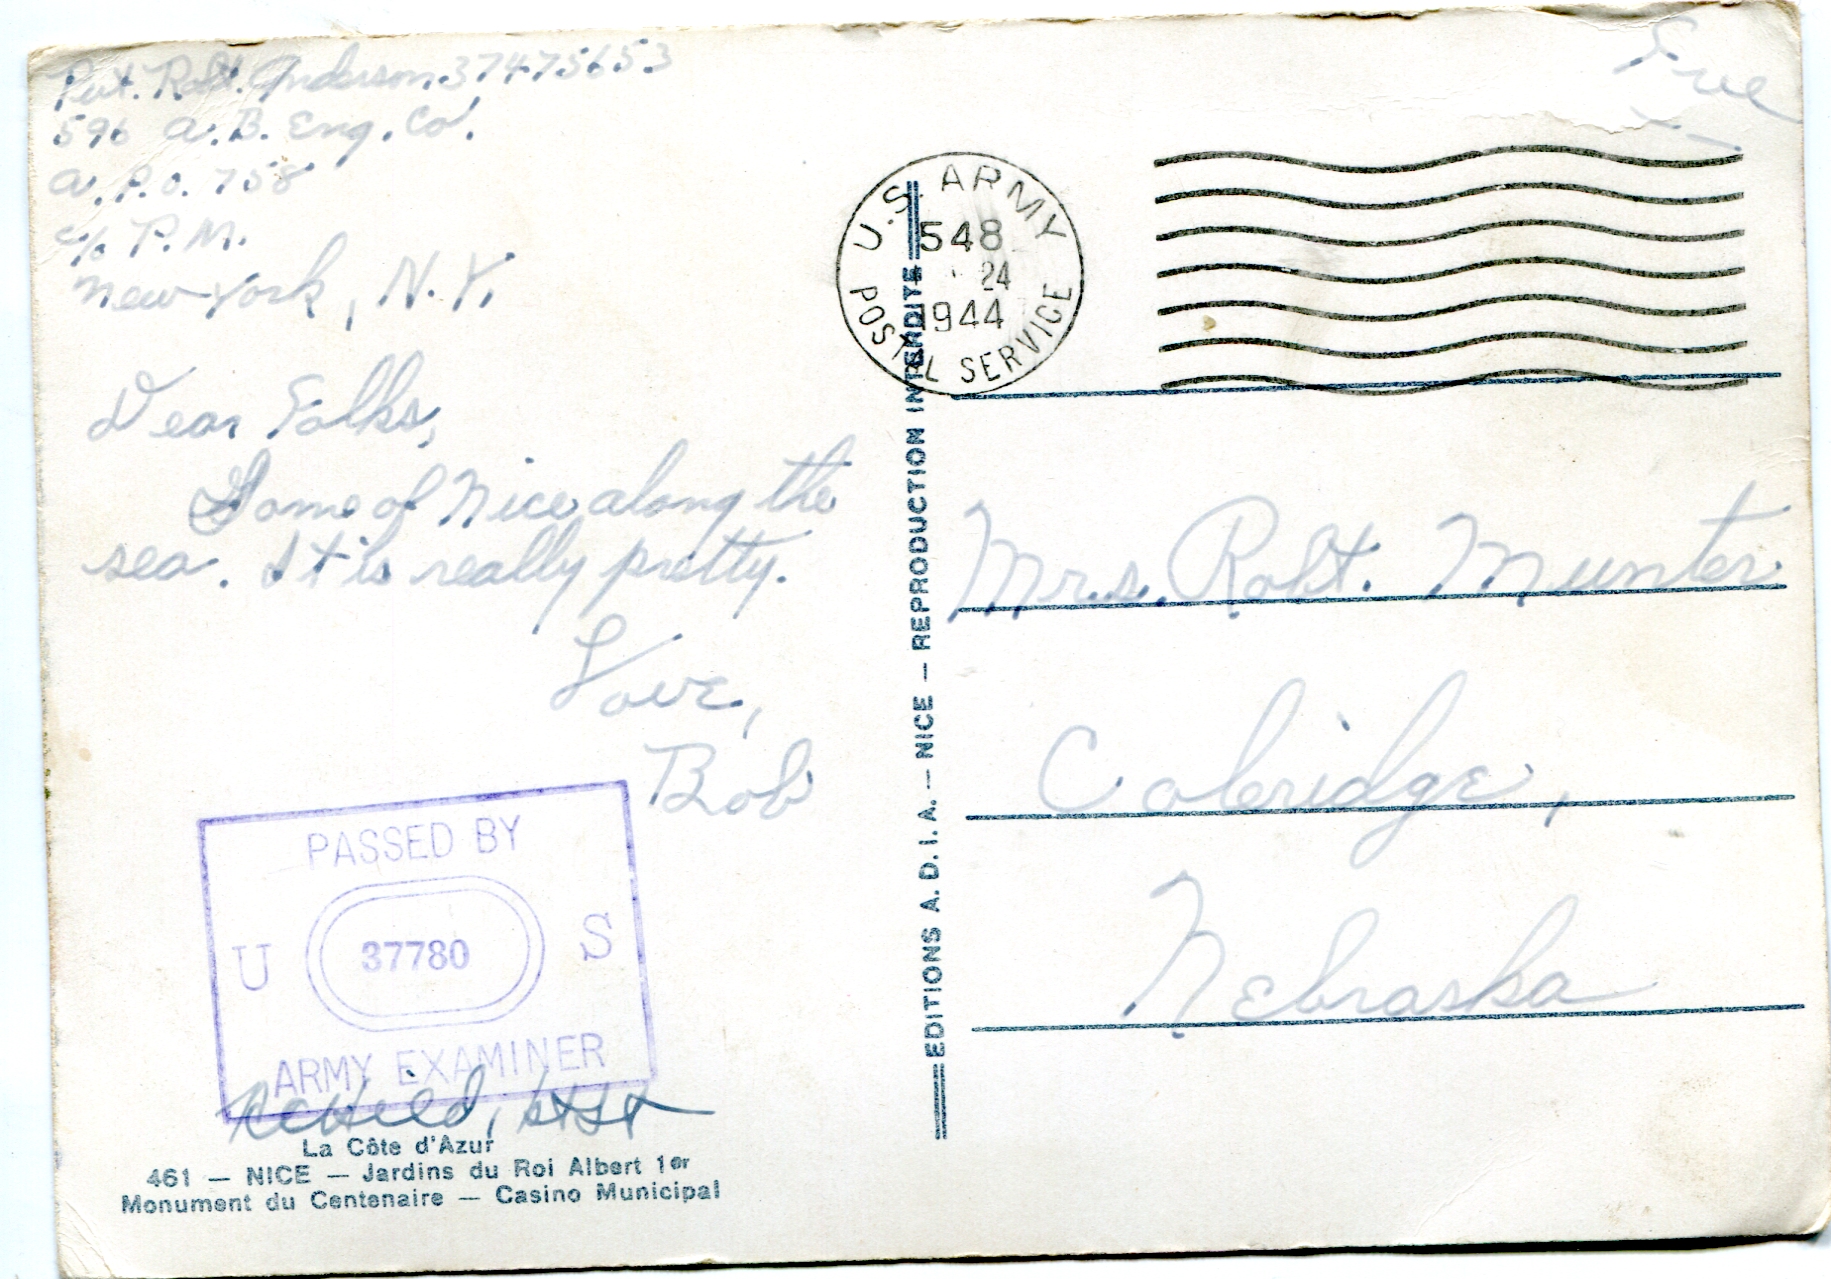 Pvt. Robt. Anderson 37475653
596 A.B. Eng. Co.
A.P.O. 758
c/o P.M.
New York, N.Y.
Free
U.S. ARMY
548
24
1944
POSTAL SERVICE
Dear Folks,
Some of Nice along the
sea. It is really pretty.
Love,
Bob
Mrs. Robt. Munter
Coleridge,
Nebraska
EDITIONS A.D.I.A. — NICE — REPRODUCTION INTERDITE
PASSED BY
U 37780 S
ARMY EXAMINER
La Côte d'Azur
461 — NICE — Jardins du Roi Albert 1er
Monument du Centenaire — Casino Municipal